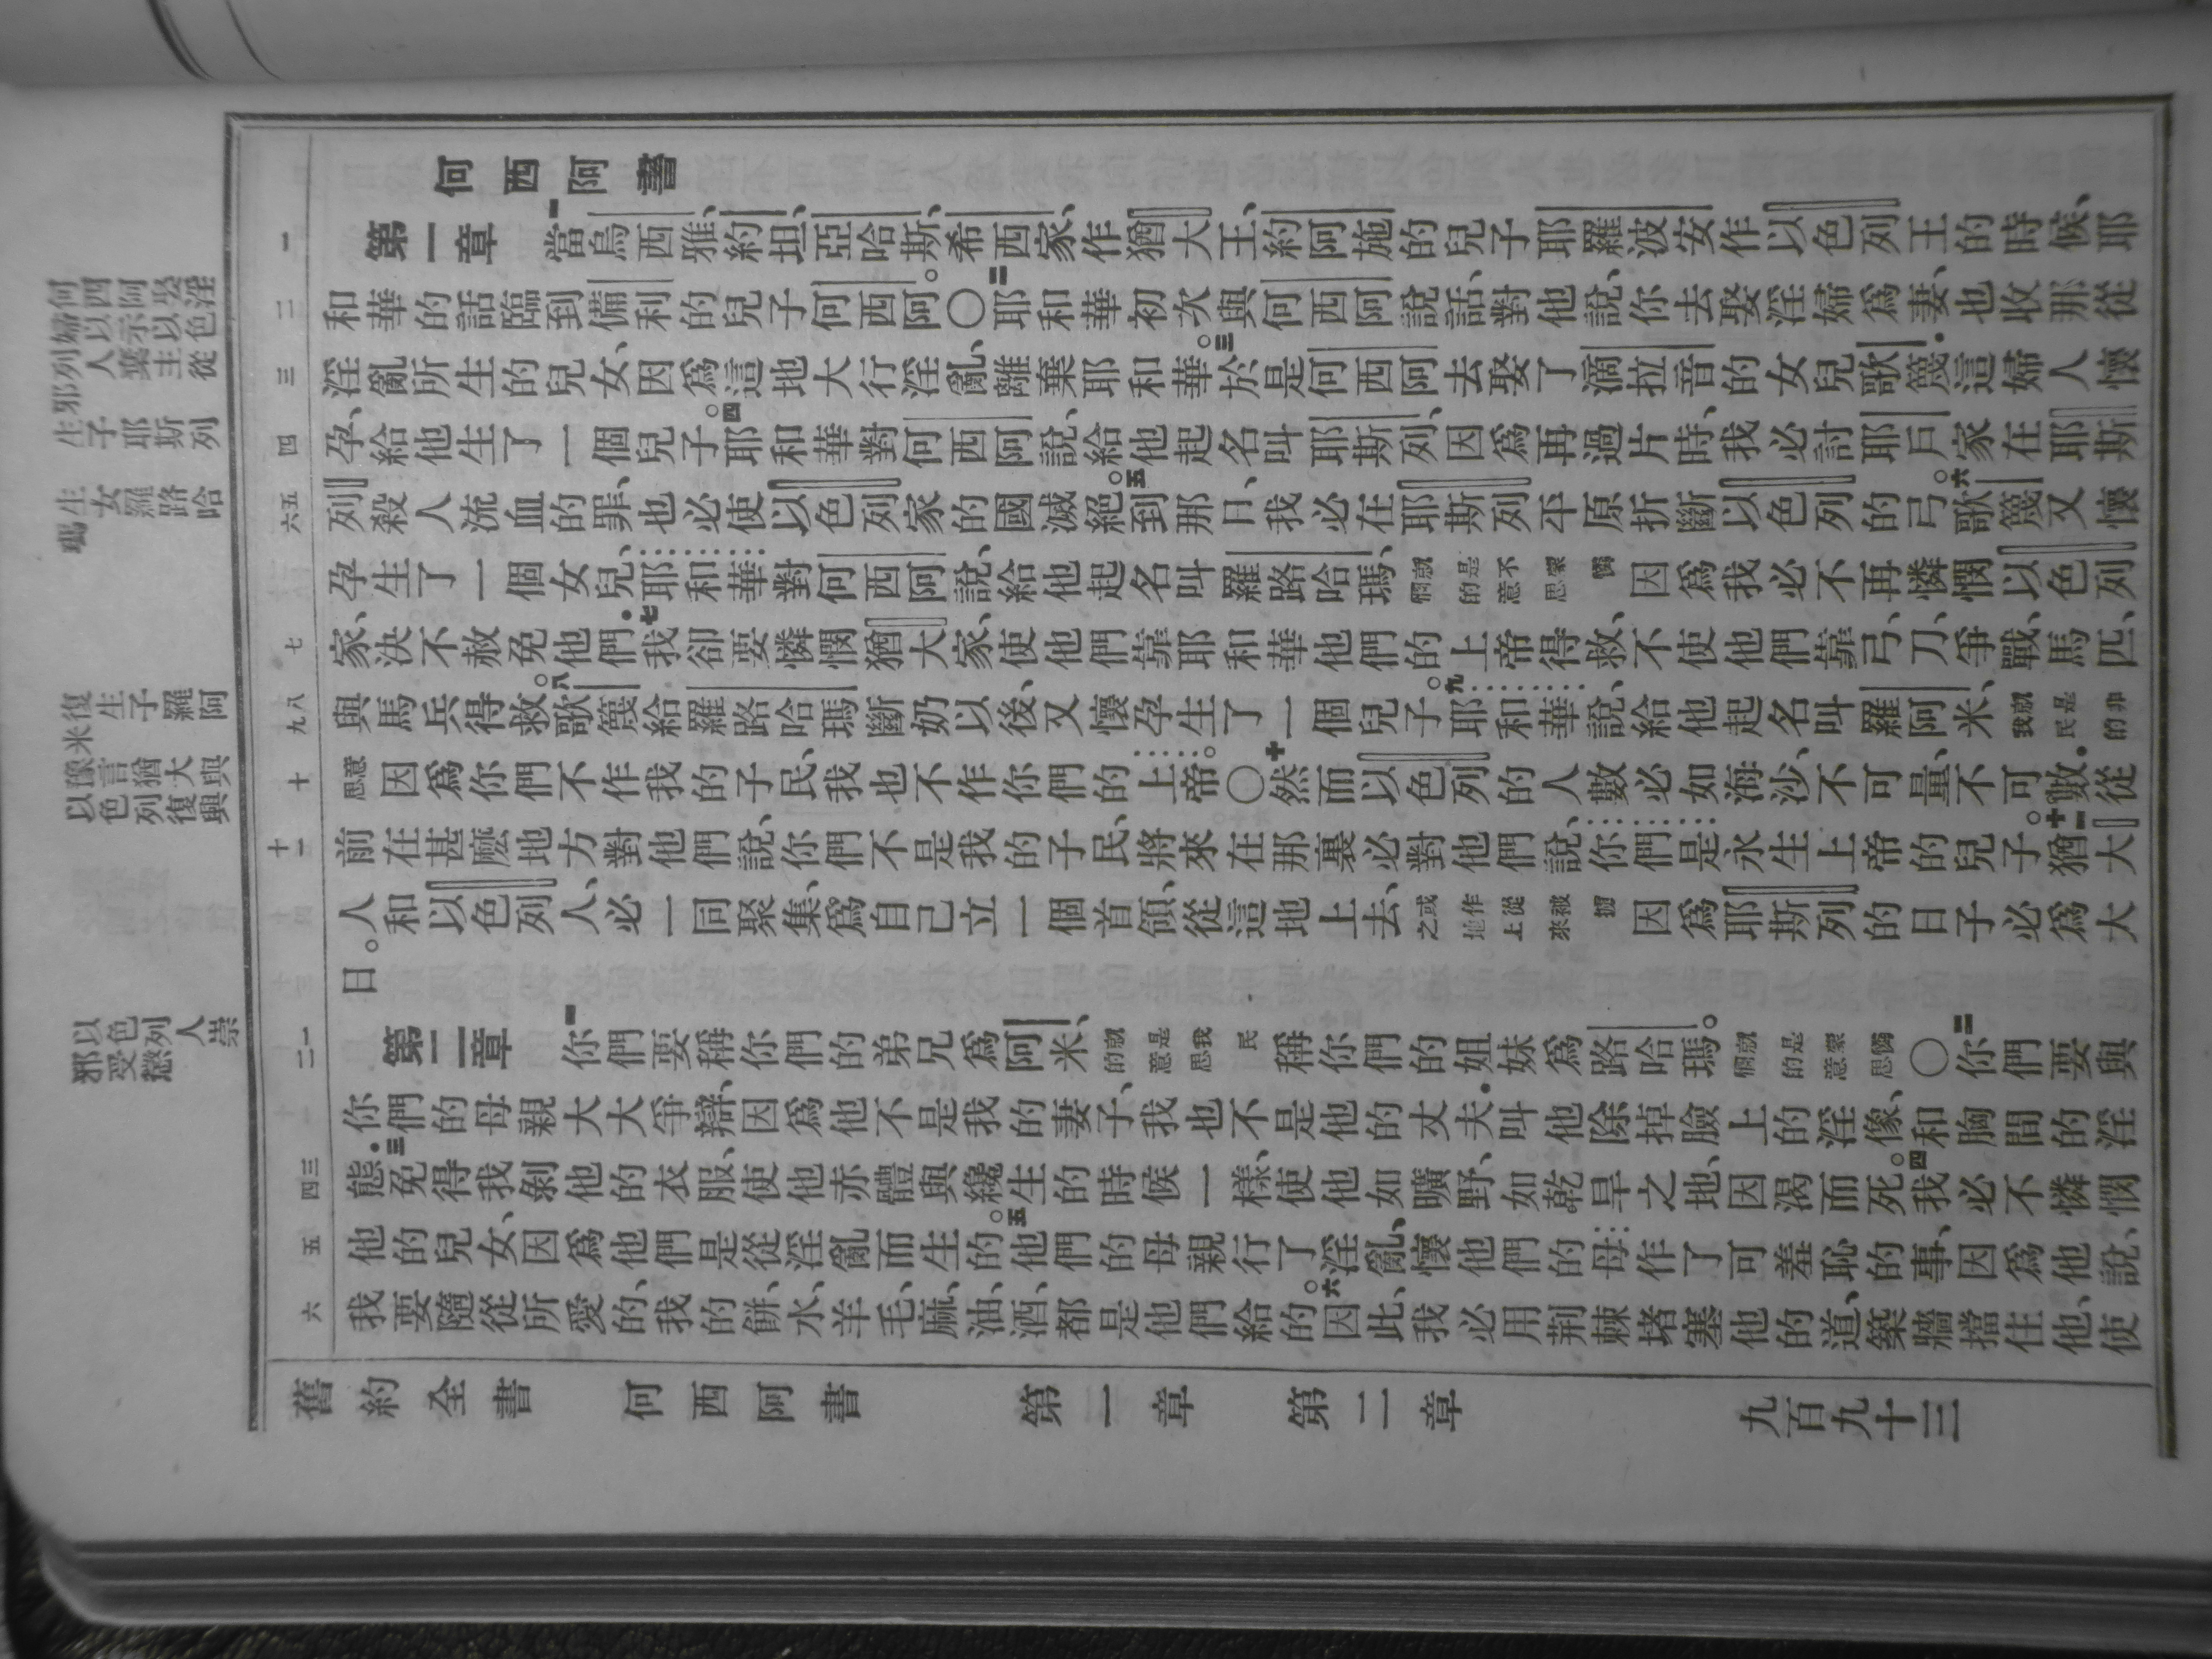 何西阿娶淫
婦以示以色
列人棄主從
邪
生子耶斯列
生女羅路哈
瑪
復生子羅阿
米
豫言猶大與
以色列復興
以色列人崇
邪受懲
何西阿書
一 第一章 一當烏西雅、約坦、亞哈斯、希西家、作猶大王、約阿施的兒子耶羅波安作以色列王的時候、耶
二 和華的話臨到備利的兒子何西阿。〇二耶和華初次與何西阿說話、對他說、你去娶淫婦爲妻、也收那從
三 淫亂所生的兒女、因爲這地大行淫亂、離棄耶和華。三於是何西阿去娶了滴拉音的女兒歌篾.這婦人懷
四 孕、給他生了一個兒子。四耶和華對何西阿說、給他起名叫耶斯列、因爲再過片時、我必討耶戶家在耶斯
五六 列殺人流血的罪、也必使以色列家的國滅絕。五到那日、我必在耶斯列平原折斷以色列的弓。六歌篾又懷
孕生了一個女兒、耶和華對何西阿說、給他起名叫羅路哈瑪、就是不蒙憐憫的意思因爲我必不再憐憫以色列
七 家、決不赦免他們.七我卻要憐憫猶大家、使他們靠耶和華他們的上帝得救、不使他們靠弓、刀、爭戰、馬匹、
八九 與馬兵得救。八歌篾給羅路哈瑪斷奶以後、又懷孕生了一個兒子。九耶和華說、給他起名叫羅阿米、就是非我民的
十 意思因爲你們不作我的子民、我也不作你們的上帝。〇十然而以色列的人數必如海沙、不可量、不可數.從
十一 前在甚麼地方對他們說、你們不是我的子民、將來在那裏必對他們說、你們是永生上帝的兒子。十一猶大
人和以色列人、必一同聚集、爲自己立一個首領、從這地上去、或作從被擄之地上來因爲耶斯列的日子必爲大
日。
一二 第二章 一你們要稱你們的弟兄爲阿米、就是我民的意思稱你們的姐妹爲路哈瑪。就是蒙憐憫的意思〇二你們要與
你們的母親大大爭辯、因爲他不是我的妻子、我也不是他的丈夫.叫他除掉臉上的淫像、和胸間的淫
三四 態.三免得我剝他的衣服、使他赤體與纔生的時候一樣、使他如曠野、如乾旱之地、因渴而死。四我必不憐憫
五 他的兒女、因爲他們是從淫亂而生的。五他們的母親行了淫亂、懷他們的母作了可羞恥的事、因爲他說、
六 我要隨從所愛的、我的餅、水、羊毛、麻、油、酒、都是他們給的。六因此、我必用荆棘堵塞他的道、築牆擋住他、使
舊約全書 何西阿書 第一章 第二章 九百九十三